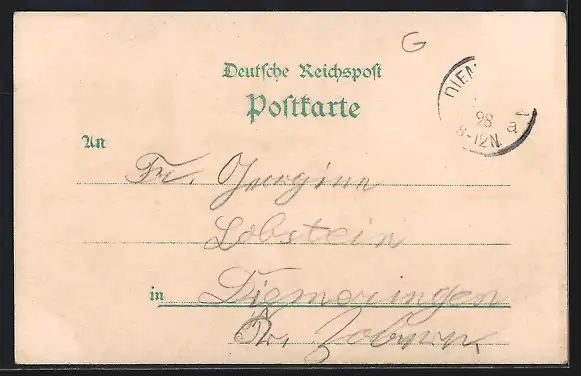 G
Deutsche Reichspost
Postkarte
DIEM
98
8-12N. a
An
Fr. Georgine
Lobstein
in Diemeringen
Kr. Zabern